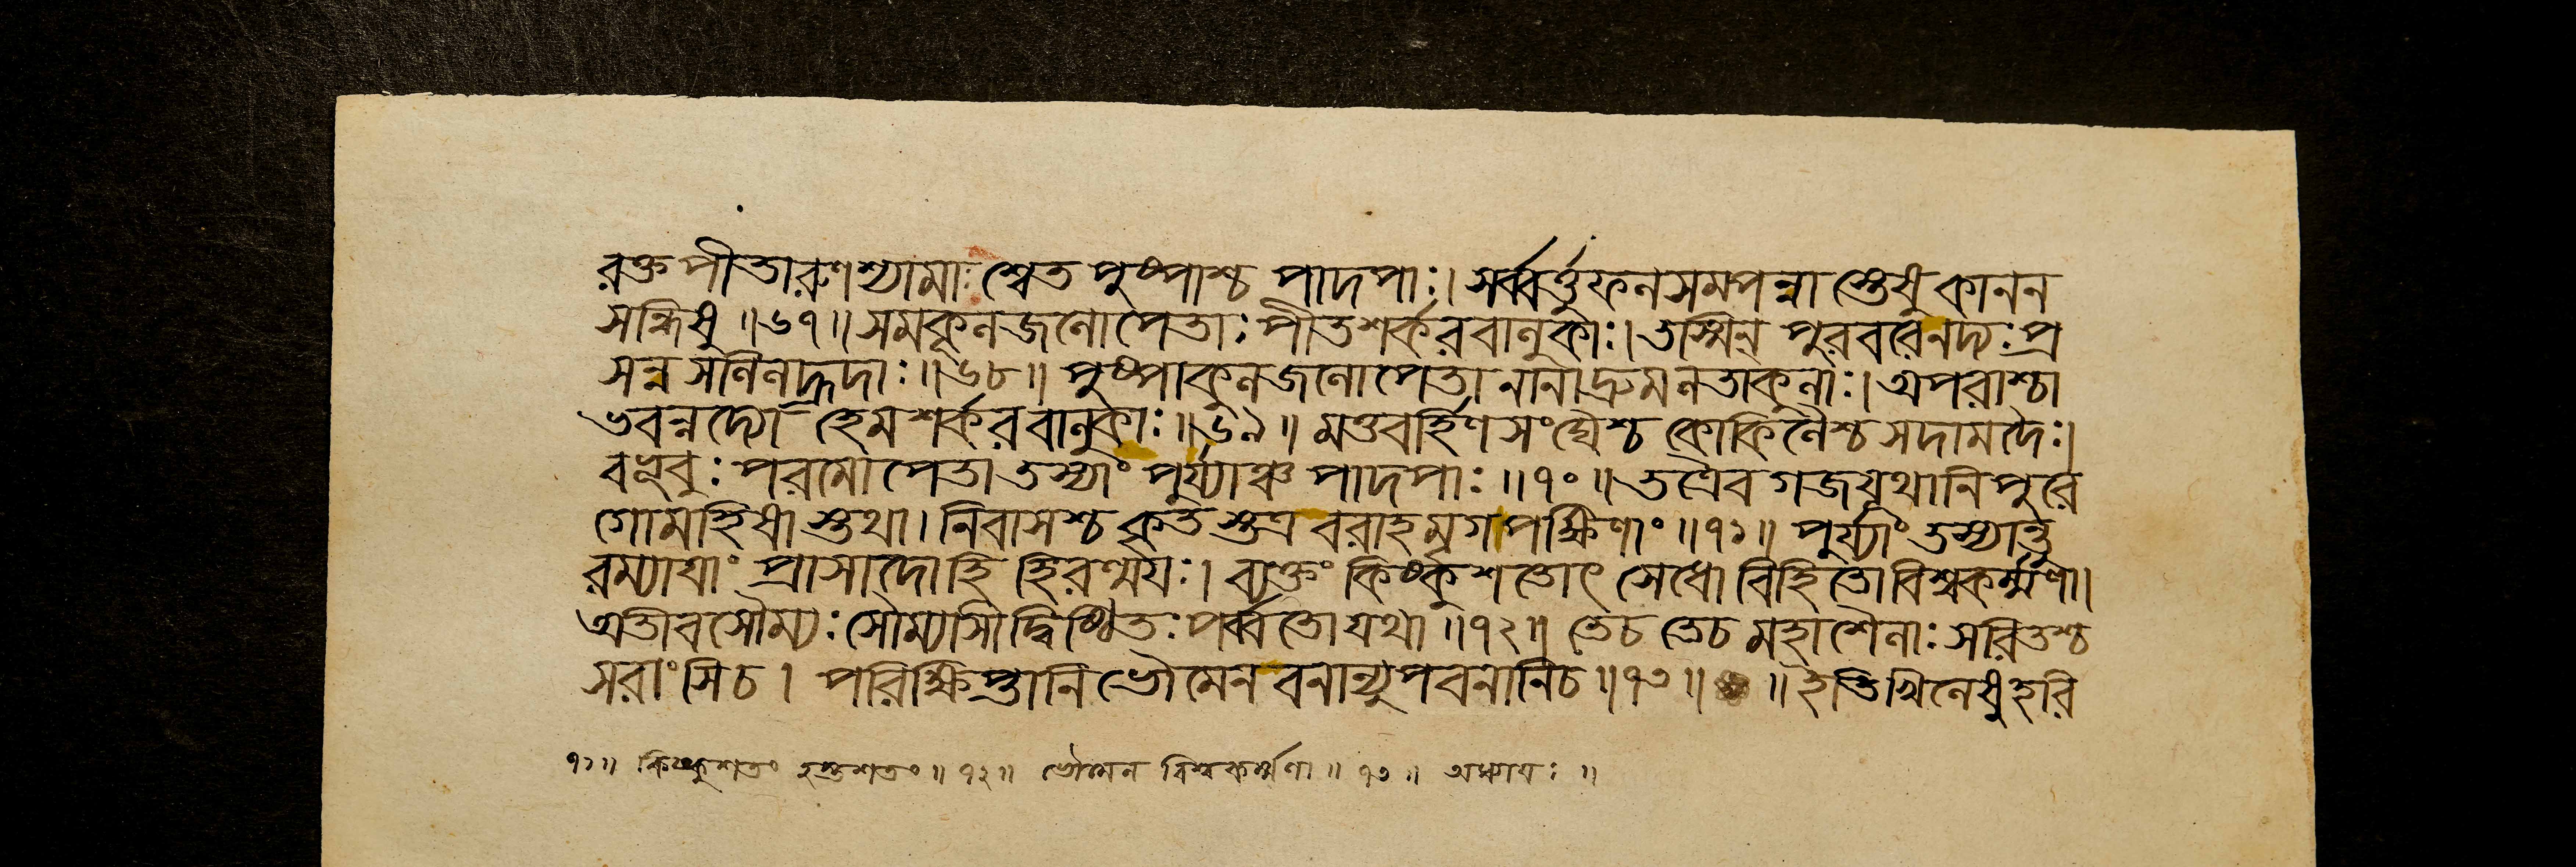 রক্তপীতারুণশ্যামাঃ শ্বেত পুষ্পাশ্চ পাদপাঃ। সর্ব্বর্ত্তুফলসমপন্না স্তেষু কানন
সন্ধিষু ॥৬৭॥ সমকূলজলোপেতাঃ পীতশর্করবালুকাঃ। তস্মিন্ পুরবরেনদ্যঃ প্র
সন্নসলিলাহ্রদাঃ ॥৬৮॥ পুষ্পাকুলজলোপেতা নানাদ্রুমলতাকুলাঃ। অপরাশ্চা
ভবন্নদ্যো হেমশর্করবালুকাঃ ॥৬৯॥ মত্তবর্হিণসংঘৈশ্চ কোকিলৈশ্চ সদামদৈঃ।
বভূবুঃ পরমোপেতা তস্যাং পুর্য্যাঞ্চ পাদপাঃ ॥৭০॥ তত্রৈব গজযূথানি পুরে
গোমহিষা স্তথা। নিবাসশ্চ কৃত স্তত্র বরাহমৃগপক্ষিণাং ॥৭১॥ পুর্য্যাং তস্যান্তু
রম্যাযাং প্রাসাদোহি হিরণ্ময়ঃ। ব্যক্তং কিষ্কুশতোৎসেধো বিহিতো বিশ্বকর্ম্মণা।
অতীবসৌম্যঃ সৌম্যাসীদ্ধিষ্ঠিতঃ পর্ব্বতো যথা ॥৭২॥ তেচ তেচ মহাশৈলাঃ সরিতশ্চ
সরাংসিচ। পরিক্ষিপ্তানি ভৌমেন বনান্যুপবনানিচ ॥৭৩॥ ॥ ইতিখিলেষু হরি
৭১॥ কিষ্কুশতং হস্তশতং ॥ ৭২॥ ভৌমেন বিশ্বকর্ম্মণা ॥ ৭৩॥ অধ্যায়ঃ ॥